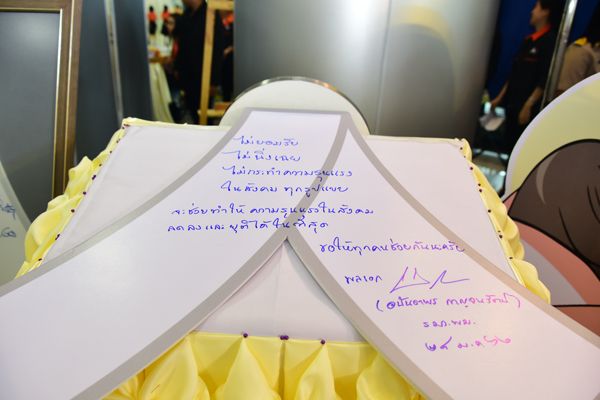 ไม่ยอมรับ
ไม่นิ่งเฉย
ไม่กระทำความรุนแรง
ในสังคม ทุกรูปแบบ
จะช่วยทำให้ ความรุนแรงในสังคม
ลดลงและ ยุติได้ในที่สุด
ขอให้ทุกคนช่วยกันนะครับ
พลเอก
(อนันตพร กาญจนรัตน์)
รมว.พม.
๒๙ ม.ค. ๖๒